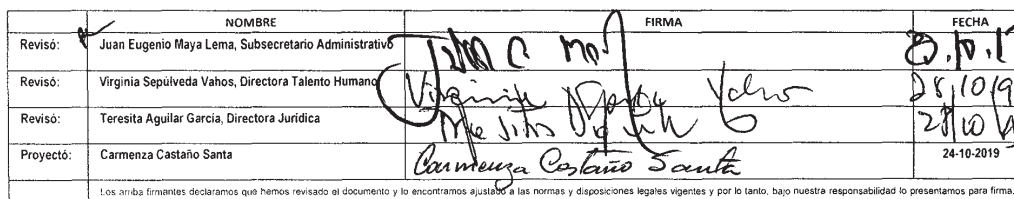 NOMBRE FIRMA FECHA
Revisó: Juan Eugenio Maya Lema, Subsecretario Administrativo
Revisó: Virginia Sepúlveda Vahos, Directora Talento Humano Virginia Vahos 28/10/9
Revisó: Teresita Aguilar García, Directora Jurídica 28/10
Proyectó: Carmenza Castaño Santa Carmenza Castaño Santa 24-10-2019
Los arriba firmantes declaramos que hemos revisado el documento y lo encontramos ajustado a las normas y disposiciones legales vigentes y por lo tanto, bajo nuestra responsabilidad lo presentamos para firma.